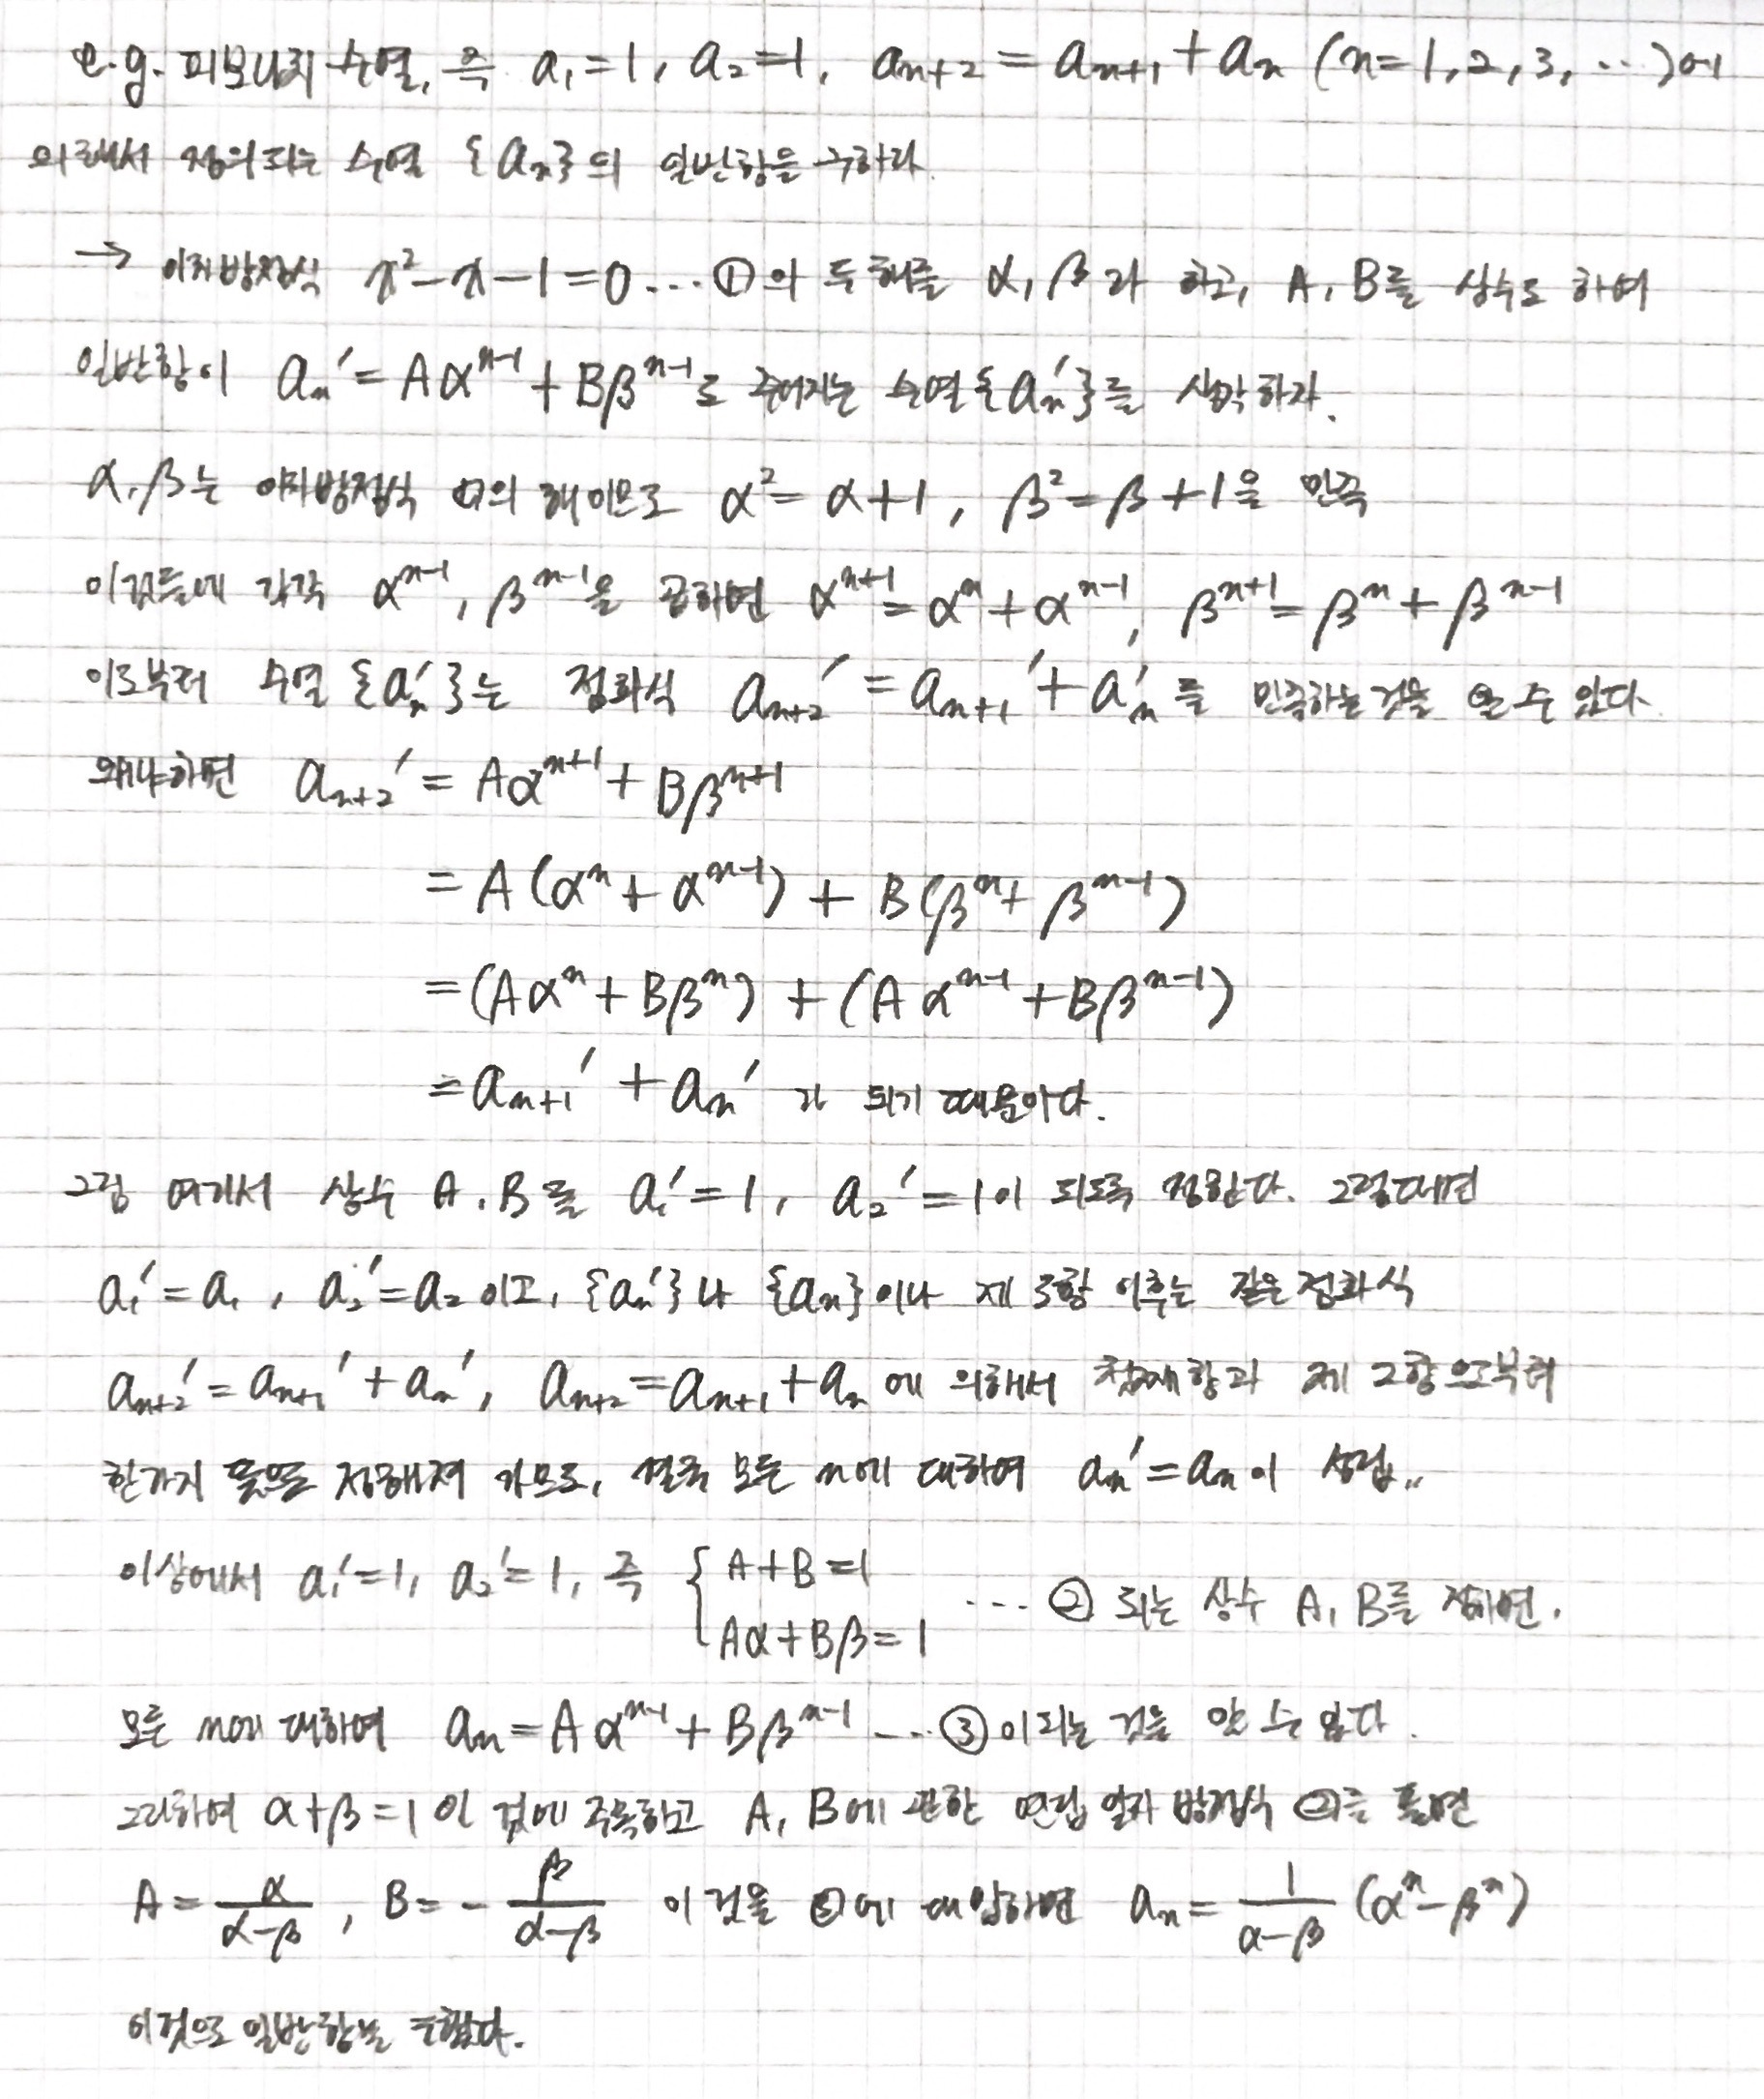 e.g. 피보나치 수열, 즉 a₁=1, a₂=1, aₙ₊₂ = aₙ₊₁ + aₙ (n=1,2,3,…)에
의해서 정의되는 수열 {aₙ}의 일반항을 구하라.
→ 이차방정식 x²-x-1=0 … ①의 두 해를 α, β라 하고, A, B를 상수로 하여
일반항이 aₙ′ = Aαⁿ⁻¹ + Bβⁿ⁻¹로 주어지는 수열 {aₙ′}를 생각하자.
α, β는 이차방정식 ①의 해이므로 α² = α+1, β² = β+1을 만족
이것들에 각각 αⁿ⁻¹, βⁿ⁻¹을 곱하면 αⁿ⁺¹ = αⁿ + αⁿ⁻¹, βⁿ⁺¹ = βⁿ + βⁿ⁻¹
이로부터 수열 {aₙ′}는 점화식 aₙ₊₂′ = aₙ₊₁′ + aₙ′를 만족하는 것을 알 수 있다.
왜냐하면 aₙ₊₂′ = Aαⁿ⁺¹ + Bβⁿ⁺¹
= A(αⁿ + αⁿ⁻¹) + B(βⁿ + βⁿ⁻¹)
= (Aαⁿ + Bβⁿ) + (Aαⁿ⁻¹ + Bβⁿ⁻¹)
= aₙ₊₁′ + aₙ′ 가 되기 때문이다.
그럼 여기서 상수 A, B를 a₁′ = 1, a₂′ = 1이 되도록 정한다. 그렇다면
a₁′ = a₁, a₂′ = a₂ 이고, {aₙ′}나 {aₙ}이나 제 3항 이후는 같은 점화식
aₙ₊₂′ = aₙ₊₁′ + aₙ′, aₙ₊₂ = aₙ₊₁ + aₙ에 의해서 첫째항과 제 2항으로부터
한가지 뜻으로 정해져 가므로, 결국 모든 n에 대하여 aₙ′ = aₙ이 성립..
이상에서 a₁′=1, a₂′=1, 즉 { A+B=1
Aα+Bβ=1 … ② 되는 상수 A, B를 정하면.
모든 n에 대하여 aₙ = Aαⁿ⁻¹ + Bβⁿ⁻¹ … ③이 되는 것을 알 수 있다.
그리하여 α+β=1인 것에 주목하고 A, B에 관한 연립 일차 방정식 ②를 풀면
A = α/(α-β), B = - β/(α-β) 이것을 ③에 대입하면 aₙ = 1/(α-β) (αⁿ-βⁿ)
이것으로 일반항을 구했다.